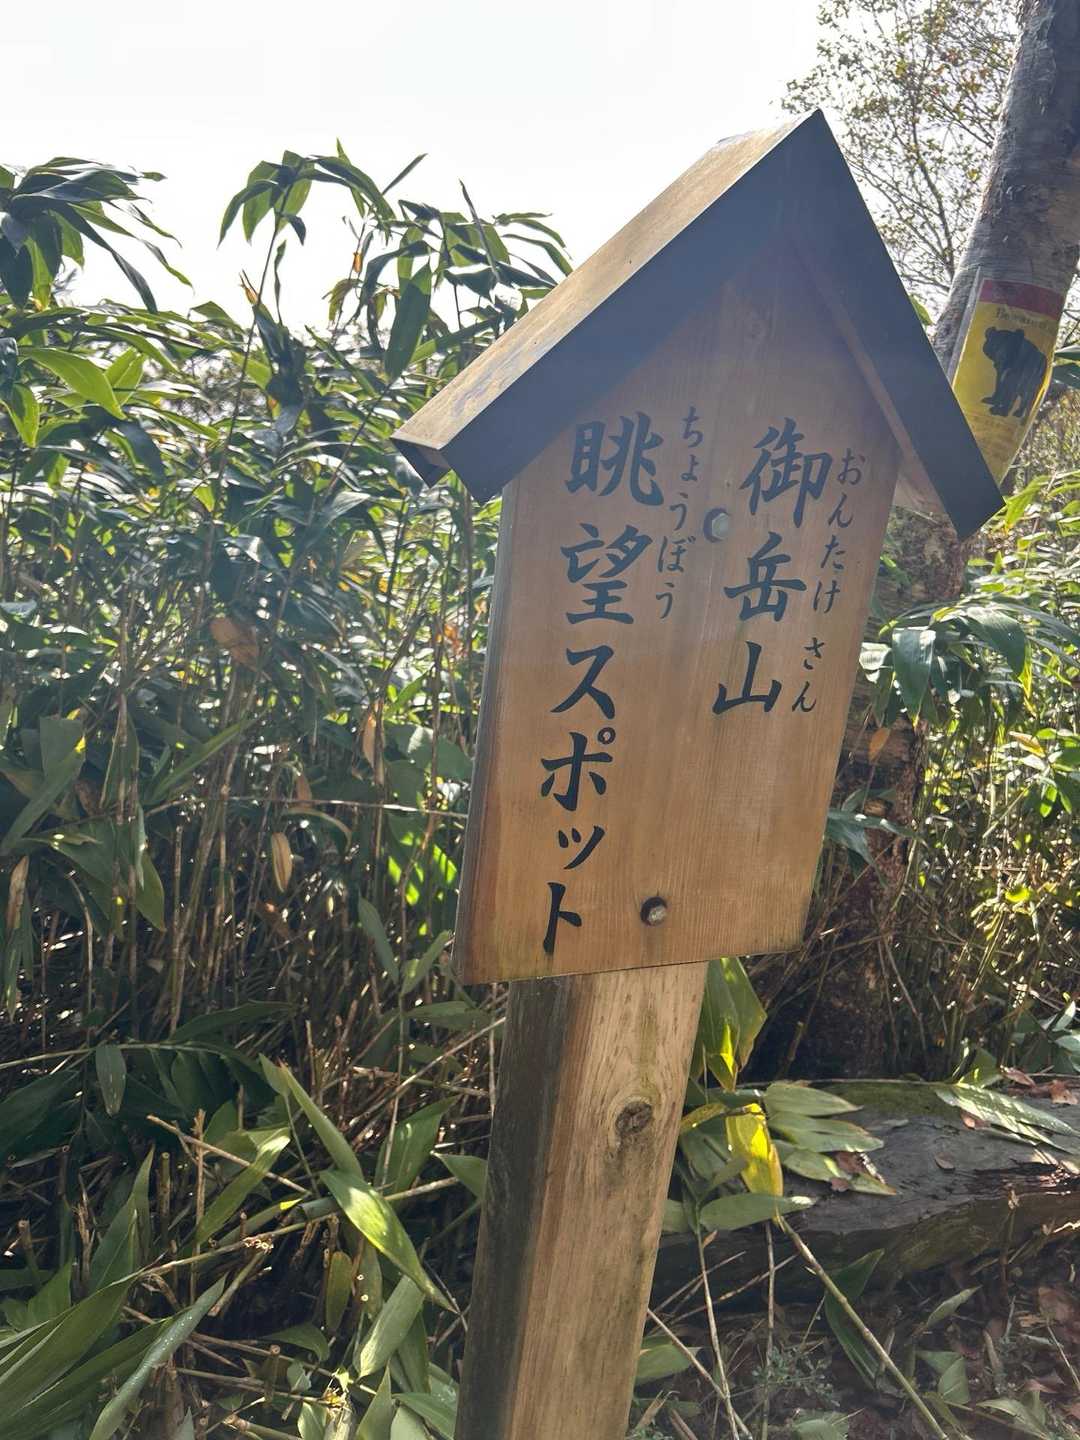 御岳山
おんたけさん
眺望スポット
ちょうぼう